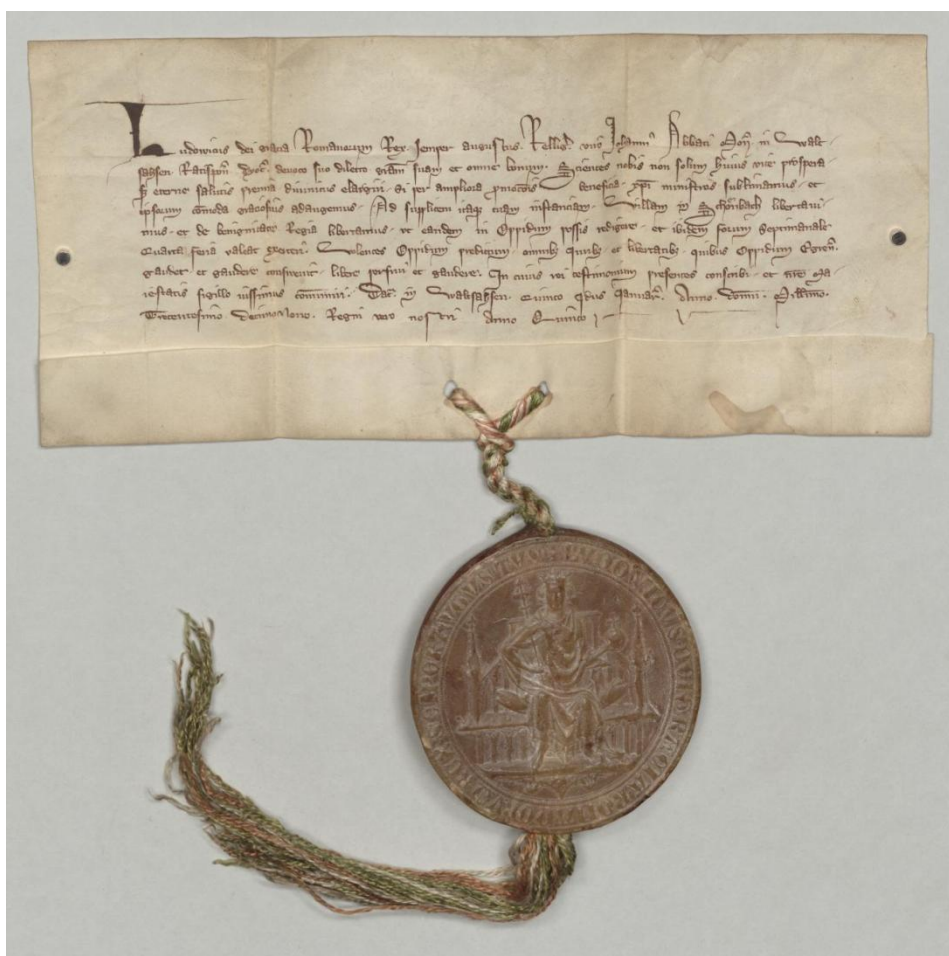 Ludowicus dei gratia Romanorum Rex semper augustus. Religioso viro Johanni Abbati Mon. in Walt-
sahsen Ratispon. dyoc. devoto suo dilecto gratiam suam et omne bonum. Scientes nobis non solum huius vite prospera
sed eterne salutis premia divinitus elargiri. Si per ampliora beneficia xpi ministros sublimamus. et
ipsorum comoda gratiosius adaugemus. Ad supplicem itaque tuam instanciam. Villam in Schonbach libertavi-
mus. et de benignitate Regia libertamus. ut eandem in Oppidum possis redigere. et ibidem forum Septimanale
Quarta feria valeat exerceri. Volentes Oppidum predictum omnibus quibus et libertatibus quibus Oppidum Egren.
gaudet et gaudere consuevit. libere perfrui et gaudere. In cuius rei testimonium presentes conscribi. et nostre Ma-
iestatis sigillo iussimus communiri. Dat. in Waltsahsen. Quinto ydus Januarii. Anno domini. Millesimo.
Trecentesimo decimonono. Regni vero nostri Anno Quinto